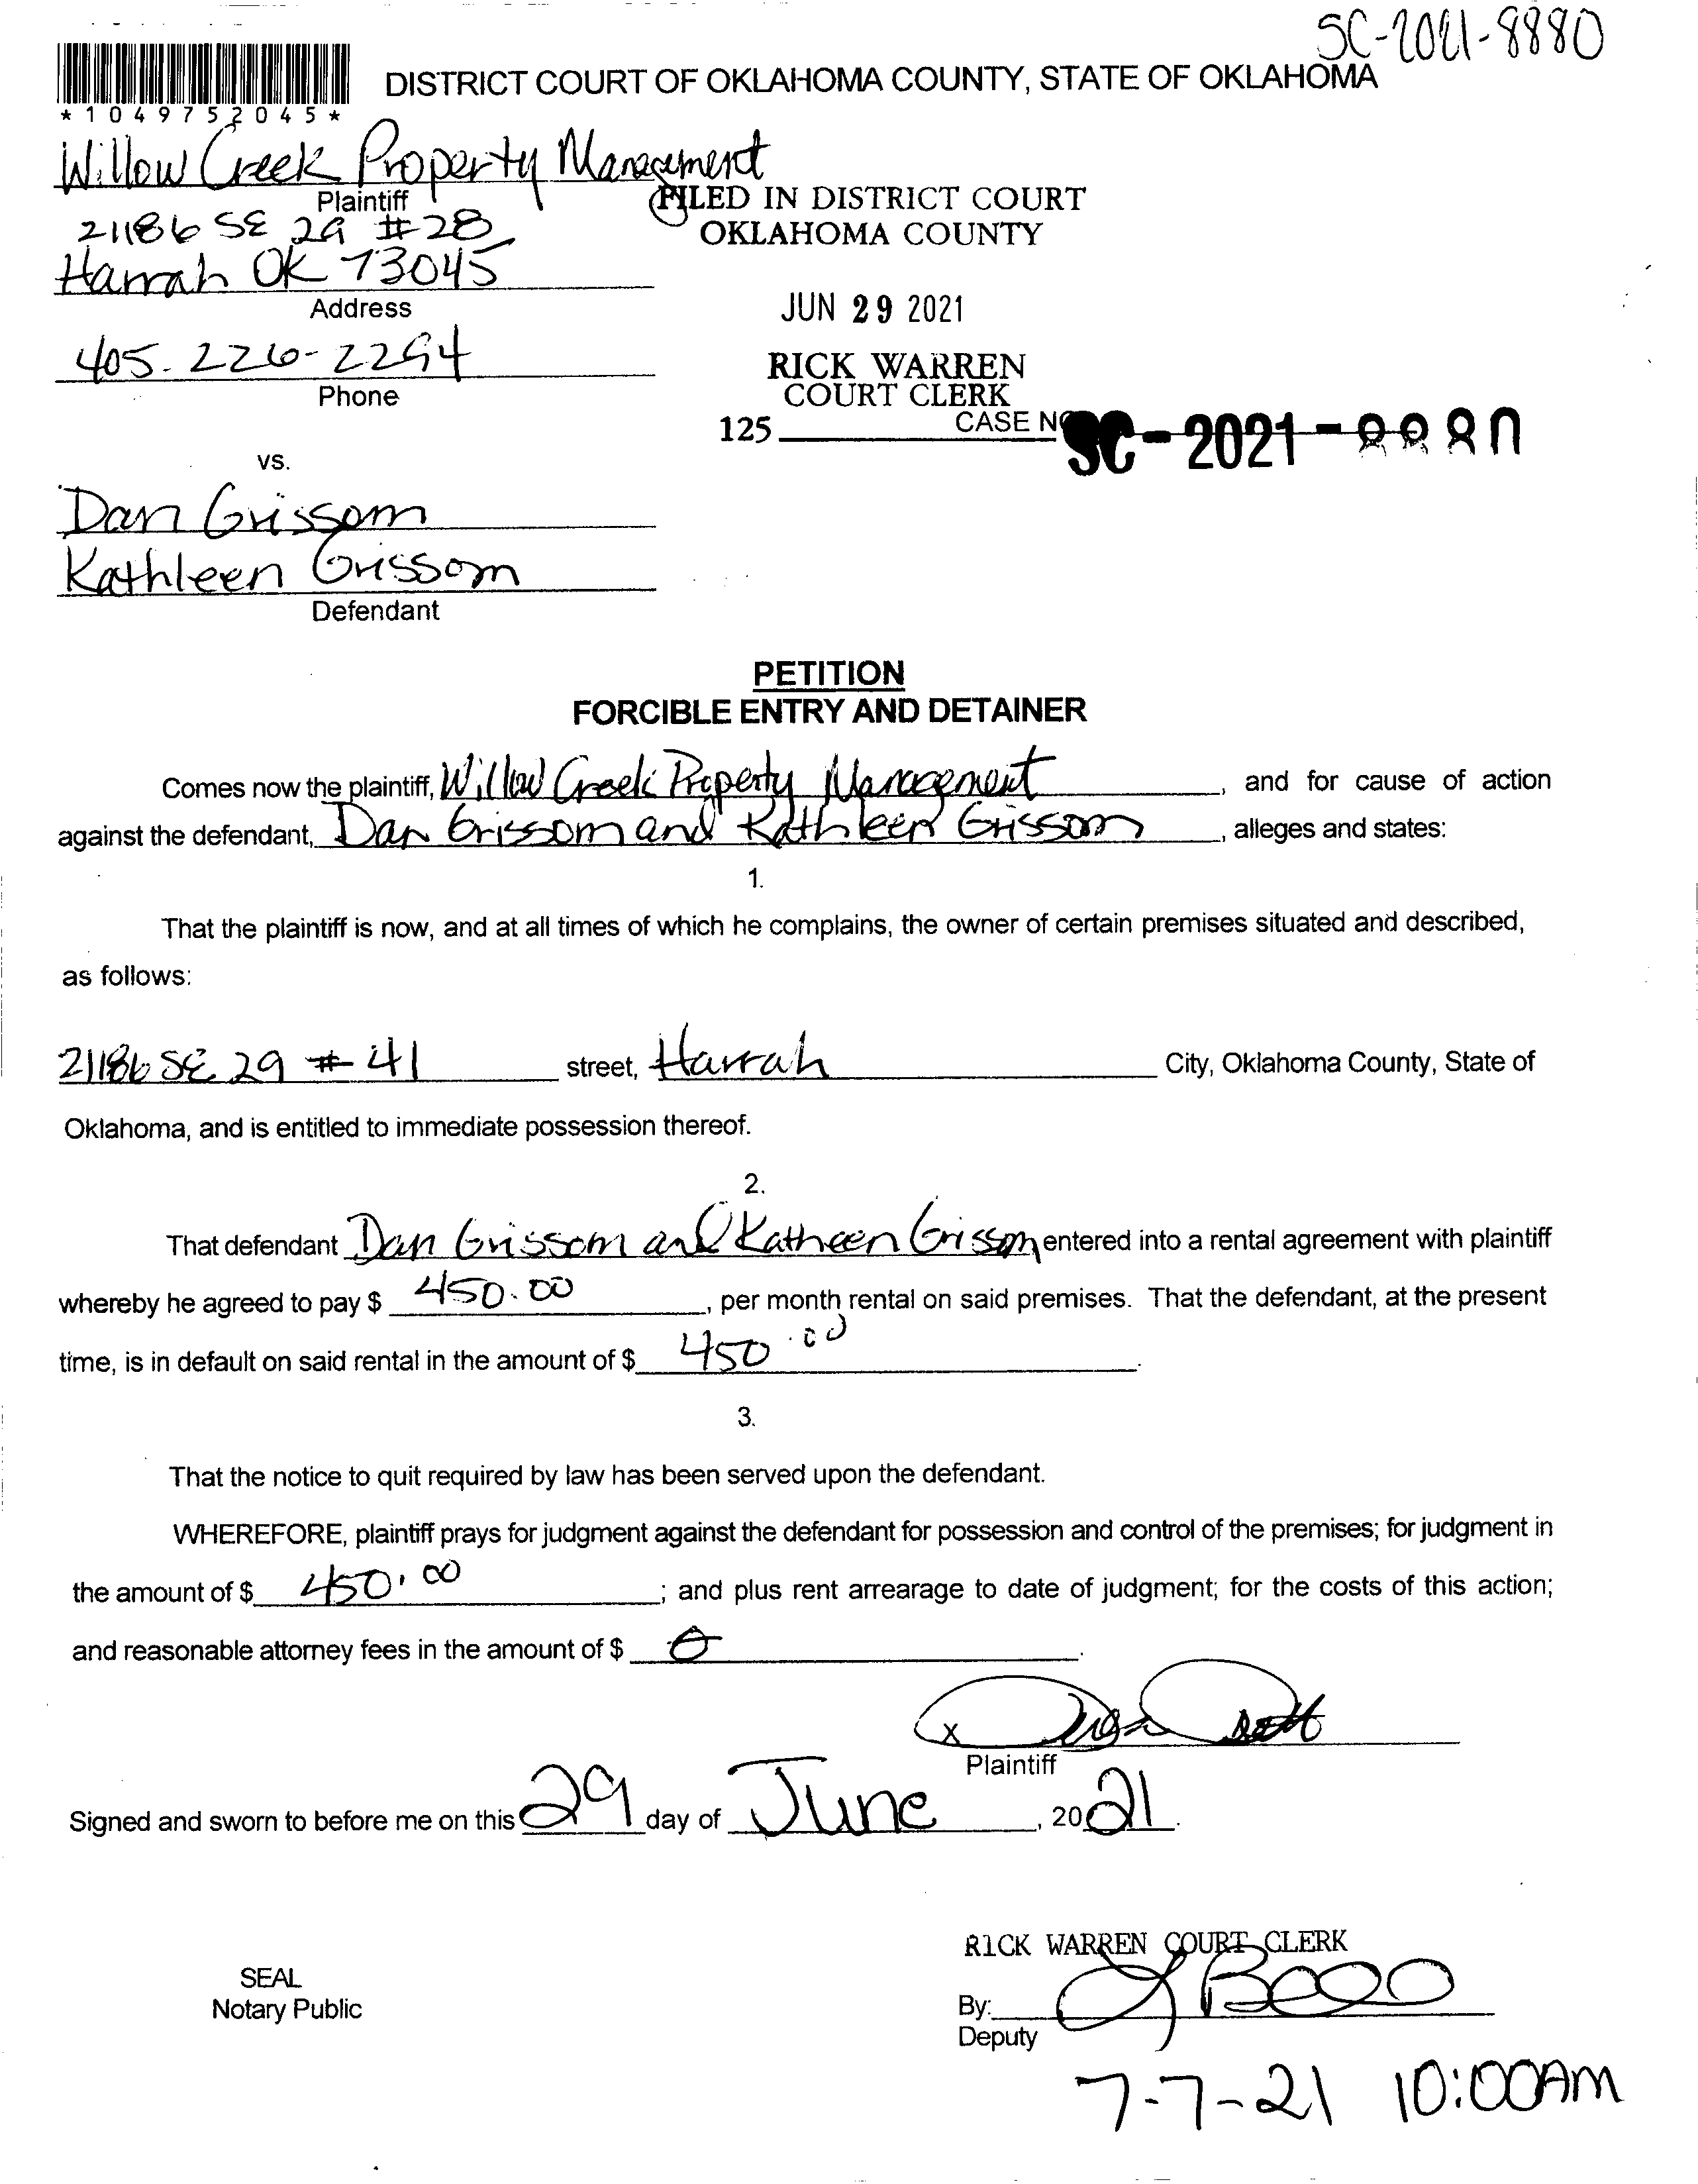 SC-2021-8880
*1049752045*
DISTRICT COURT OF OKLAHOMA COUNTY, STATE OF OKLAHOMA
Willow Creek Property Management
Plaintiff
FILED IN DISTRICT COURT
OKLAHOMA COUNTY
21186 SE 29 #28
Harrah OK 73045
Address
JUN 29 2021
405. 226-2294
Phone
RICK WARREN
COURT CLERK
125
CASE NO
SC-2021-8880
vs.
Dan Grissom
Kathleen Grissom
Defendant
PETITION
FORCIBLE ENTRY AND DETAINER
Comes now the plaintiff, Willow Creek Property Management, and for cause of action
against the defendant, Dan Grissom and Kathleen Grissom, alleges and states:
1.
That the plaintiff is now, and at all times of which he complains, the owner of certain premises situated and described,
as follows:
21186 SE 29 # 41 street, Harrah City, Oklahoma County, State of
Oklahoma, and is entitled to immediate possession thereof.
2.
That defendant Dan Grissom and Katheen Grissom entered into a rental agreement with plaintiff
whereby he agreed to pay $ 450.00, per month rental on said premises. That the defendant, at the present
time, is in default on said rental in the amount of $ 450.00.
3.
That the notice to quit required by law has been served upon the defendant.
WHEREFORE, plaintiff prays for judgment against the defendant for possession and control of the premises; for judgment in
the amount of $ 450.00; and plus rent arrearage to date of judgment; for the costs of this action;
and reasonable attorney fees in the amount of $ 0.
X
Plaintiff
Signed and sworn to before me on this 29 day of June, 2021.
RICK WARREN COURT CLERK
SEAL
Notary Public
By:
Deputy
7-7-21 10:00AM